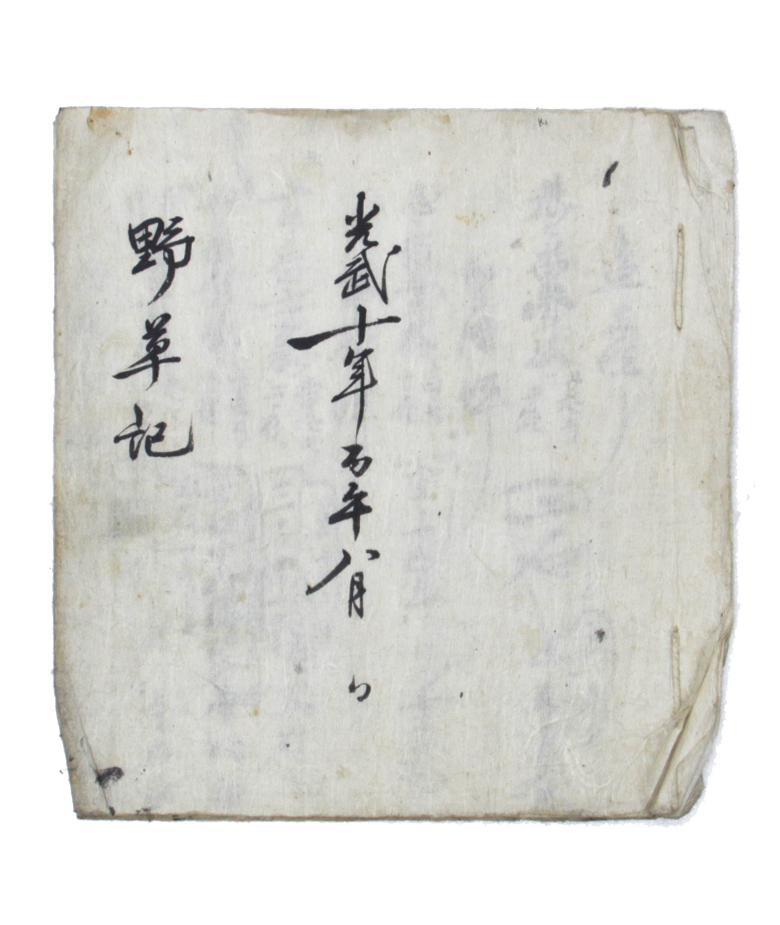 光武十年丙午八月 日
野草記